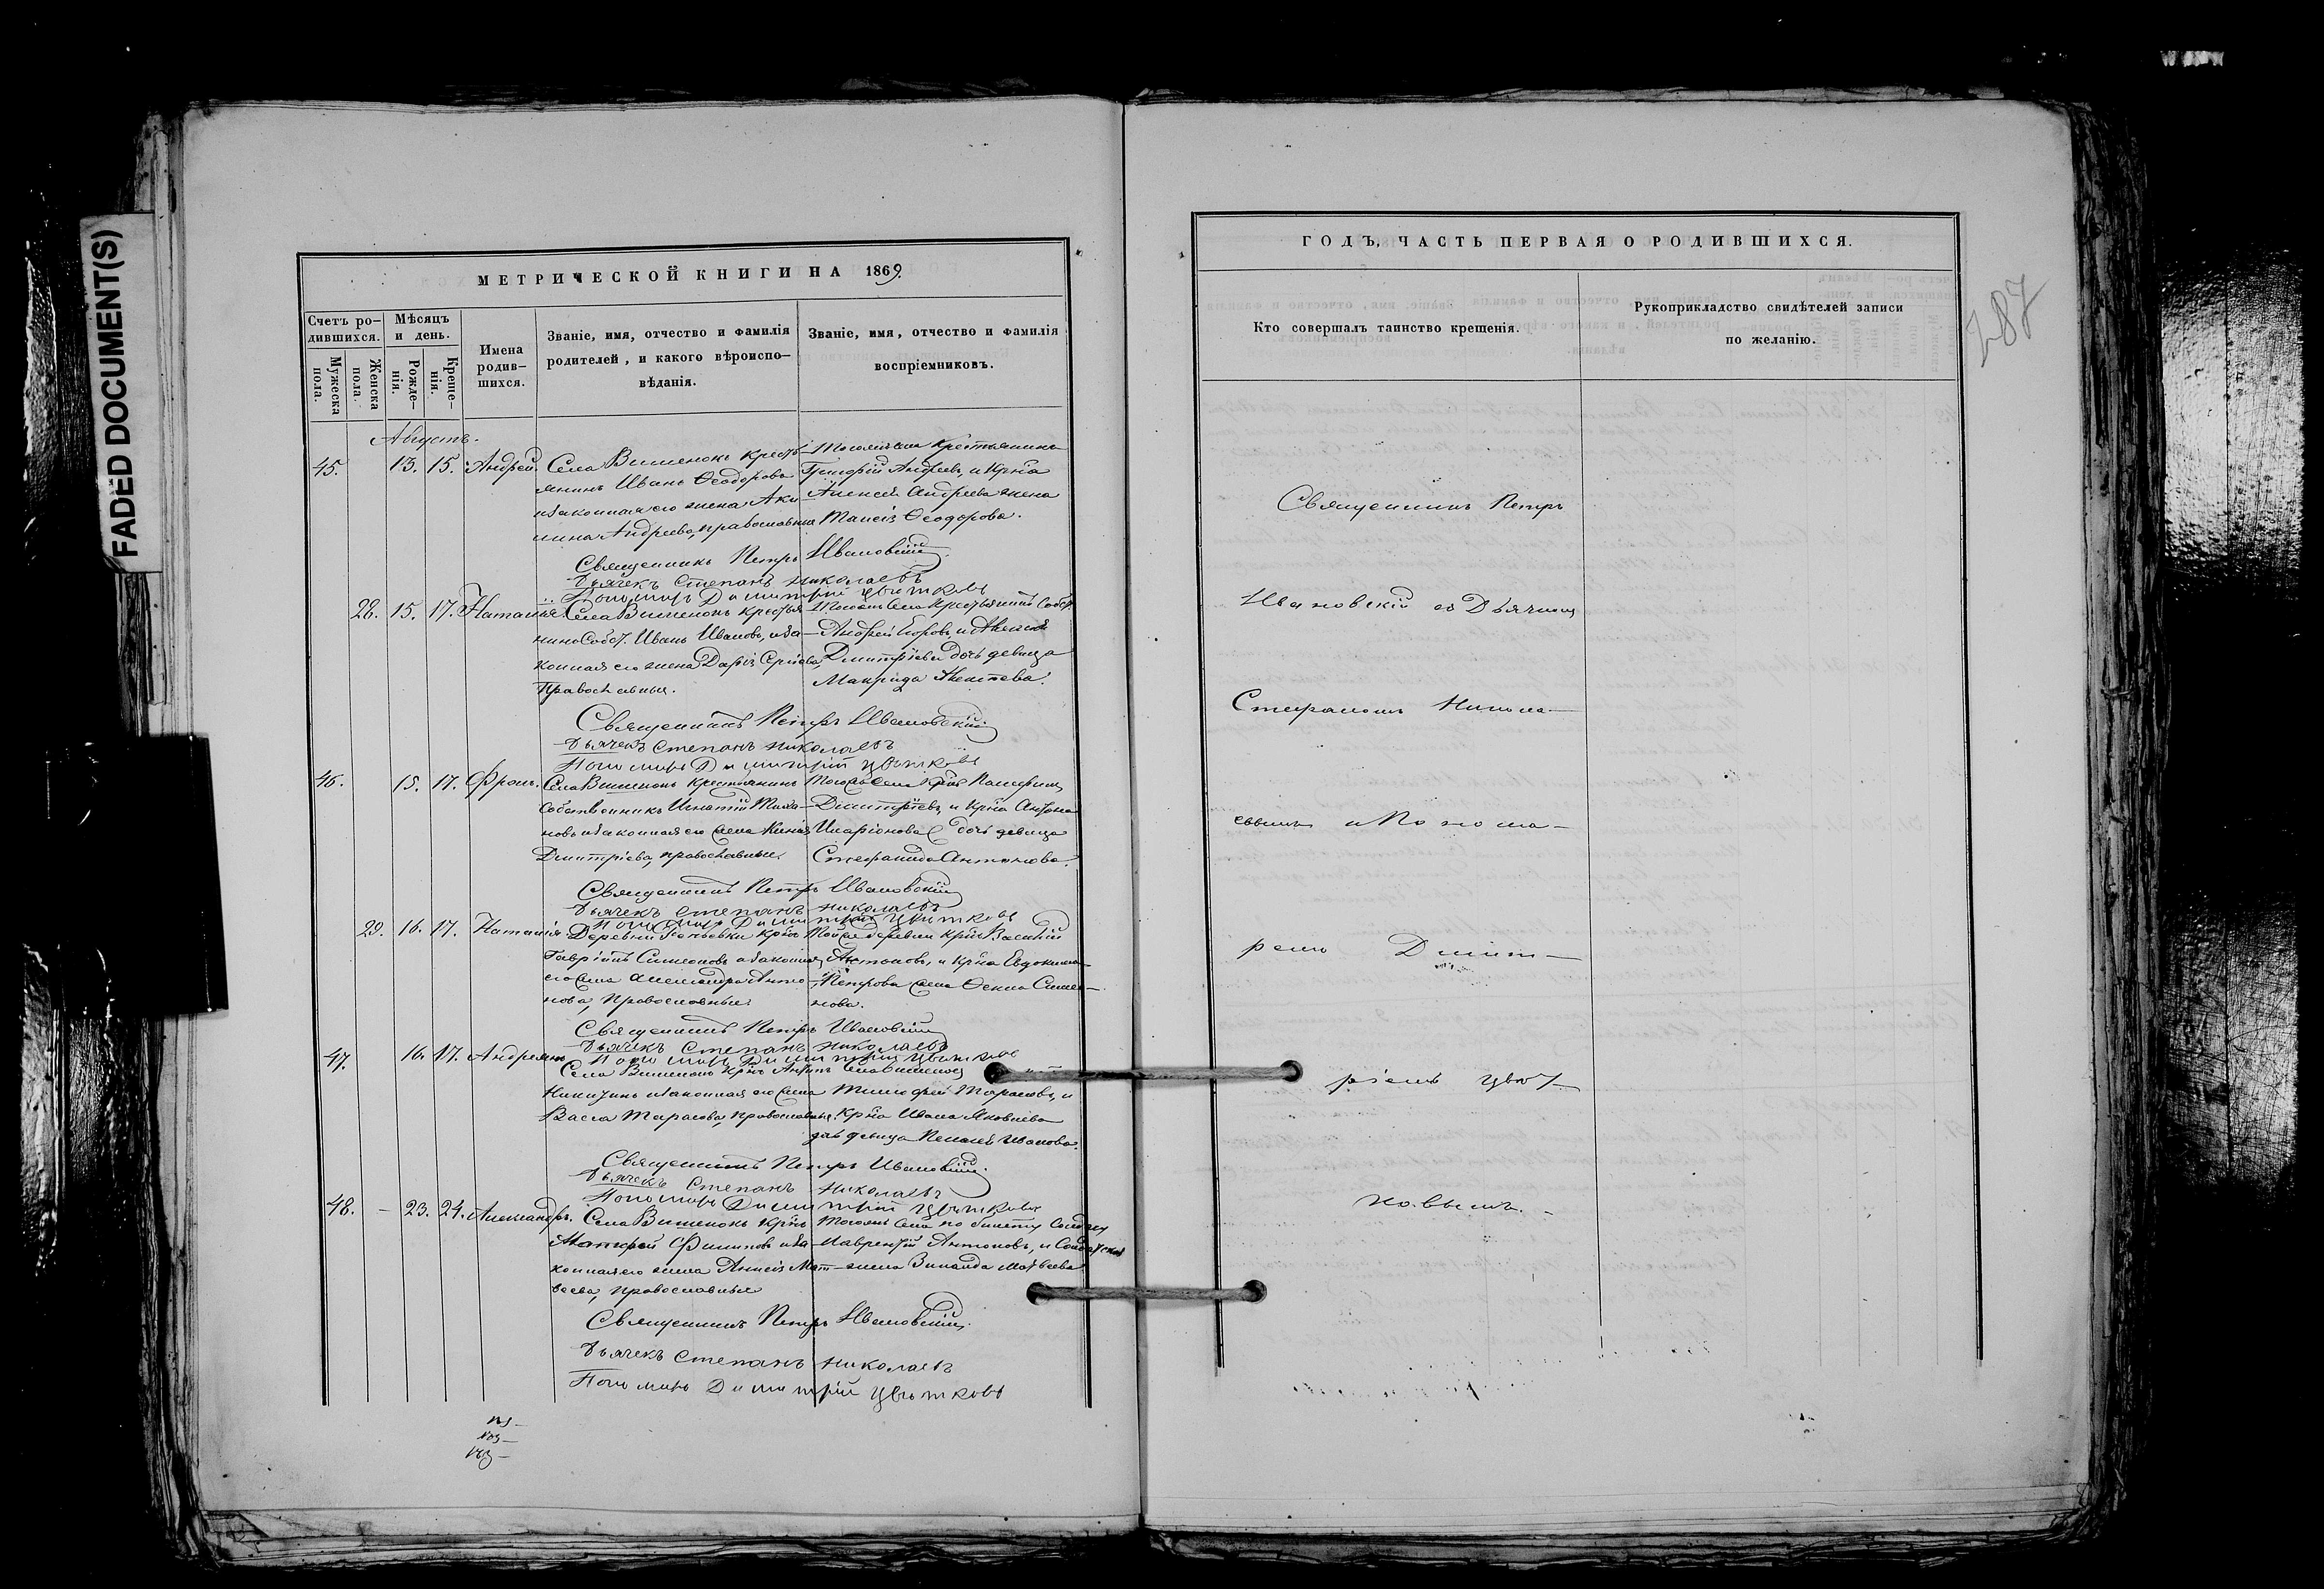 FADED DOCUMENT(S)
МЕТРИЧЕСКОЙ КНИГИ НА 1869.
Счетъ ро-
дившихся.
Мѣсяцъ
и день.
Мужеска
пола.
Женска
пола.
Рожде-
нія.
Креще-
нія.
Имена
родив-
шихся.
Званіе, имя, отчество и фамилія
родителей, и какого вѣроиспо-
вѣданія.
Званіе, имя, отчество и фамилія
воспріемниковъ.
Августъ.
45. 13. 15. Андрей.
Села Вишенокъ кресть-
янинъ Иванъ Ѳеодоровъ
и законная его жена Аки-
лина Андреева, православныя
Тогоже села крестьянинъ
Григорій Андреевъ, и Крна
Алексея Андреева жена
Таисія Ѳеодорова.
Священникъ Петръ Ивановскій
Дьячекъ Степанъ Николаевъ
Пономарь Димитрій Цвѣтковъ
28. 15. 17. Наталья.
Села Вишенокъ крестья
нинъ Собст. Иванъ Ивановъ, и за-
конная его жена Дарія Сергіева,
Православныя.
Тогоже Села Крестьянинъ Собст.
Андрей Егоровъ, и
Дмитріева дочь девица
Макрида
Священникъ Петръ Ивановскій
Дьячекъ Степанъ Николаевъ
Пономарь Димитрій Цвѣтковъ
46. 15. 17. Фролъ.
Села Вишенокъ крестьянинъ
Собственникъ Игнатій
и законная его жена
Дмитріева, православные.
Тогоже Села
Дмитріевъ, и Крна
Иларіонова дочь девица
Стефанида Антонова.
Священникъ Петръ Ивановскій
Дьячекъ Степанъ Николаевъ
Пономарь Димитрій Цвѣтковъ
29. 16. 17. Наталія.
Деревни
Гавріилъ Симеоновъ и законная
его жена Александра Анто-
нова, Православные.
Той же деревни Крнъ Василій
Антоновъ, и Крна Евдокима
Петрова жена Ѳекла Симео-
нова.
Священникъ Петръ Ивановскій
Дьячекъ Степанъ Николаевъ
Пономарь Димитрій Цвѣтковъ
47. 16. 17. Андреянъ
Села Вишенокъ Крнъ
Никитинъ и законная его жена
Васса Тарасова, православные.
Села Вишенокъ
Тимофей Тарасовъ, и
Крна Ивана Яковлева
дочь девица Пелагея Иванова.
Священникъ Петръ Ивановскій
Дьячекъ Степанъ Николаевъ
Пономарь Димитрій Цвѣтковъ
48. - 23. 24. Александръ.
Села Вишенокъ Крнъ
Филиповъ и за-
конная его жена Анисія Мат-
веева, православныя
Тогоже Села по билету Солдатъ
Лаврентій Антоновъ, и Солдатская
жена Зинаида Матвеева.
Священникъ Петръ Ивановскій
Дьячекъ Степанъ Николаевъ
Пономарь Димитрій Цвѣтковъ
ГОДЪ, ЧАСТЬ ПЕРВАЯ О РОДИВШИХСЯ.
Кто совершалъ таинство крещенія.
Рукоприкладство свидѣтелей записи
по желанію.
287
Священникъ Петръ
Ивановскій съ Дьячкомъ
Стефаномъ Никола-
евымъ и Понома-
ремъ Димит-
ріемъ Цвѣт-
ковымъ.